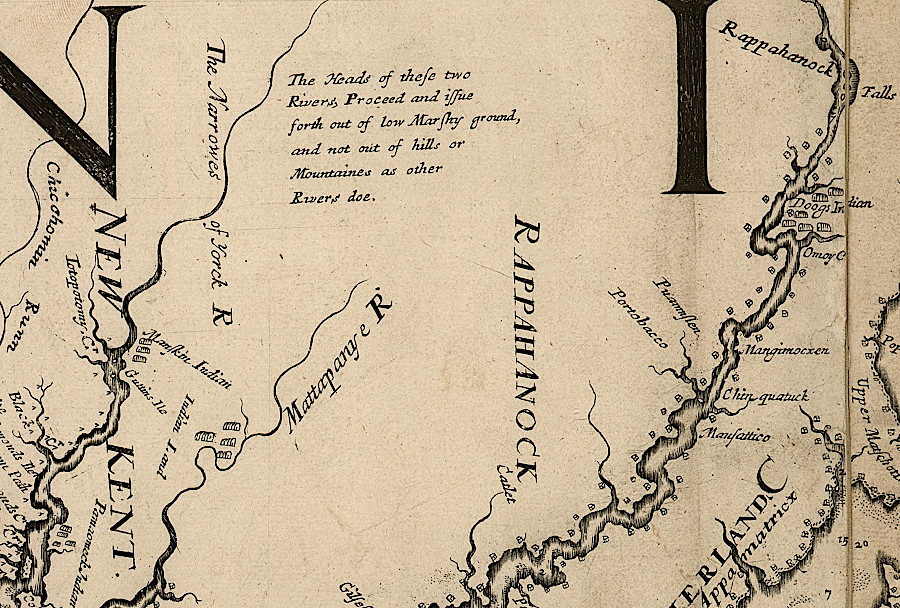 N
I
The Narrowes
of Yorck R
The Heads of these two
Rivers, Proceed and issue
forth out of low Marshy ground,
and not out of hills or
Mountaines as other
Rivers doe.
Rappahanock
Falls
Doogs Indian
Omoy C
Chicohomin
Runn
NEW
KENT.
Totopotomy Cr
Manskin Indian
Gutins Ile
Indian Land
Mattapanye R
RAPPAHANOCK
Portobacco
Mangimocxen
Chin quatuck
Mansattico
Upper
Cadet
Black
Cr
15
20
7